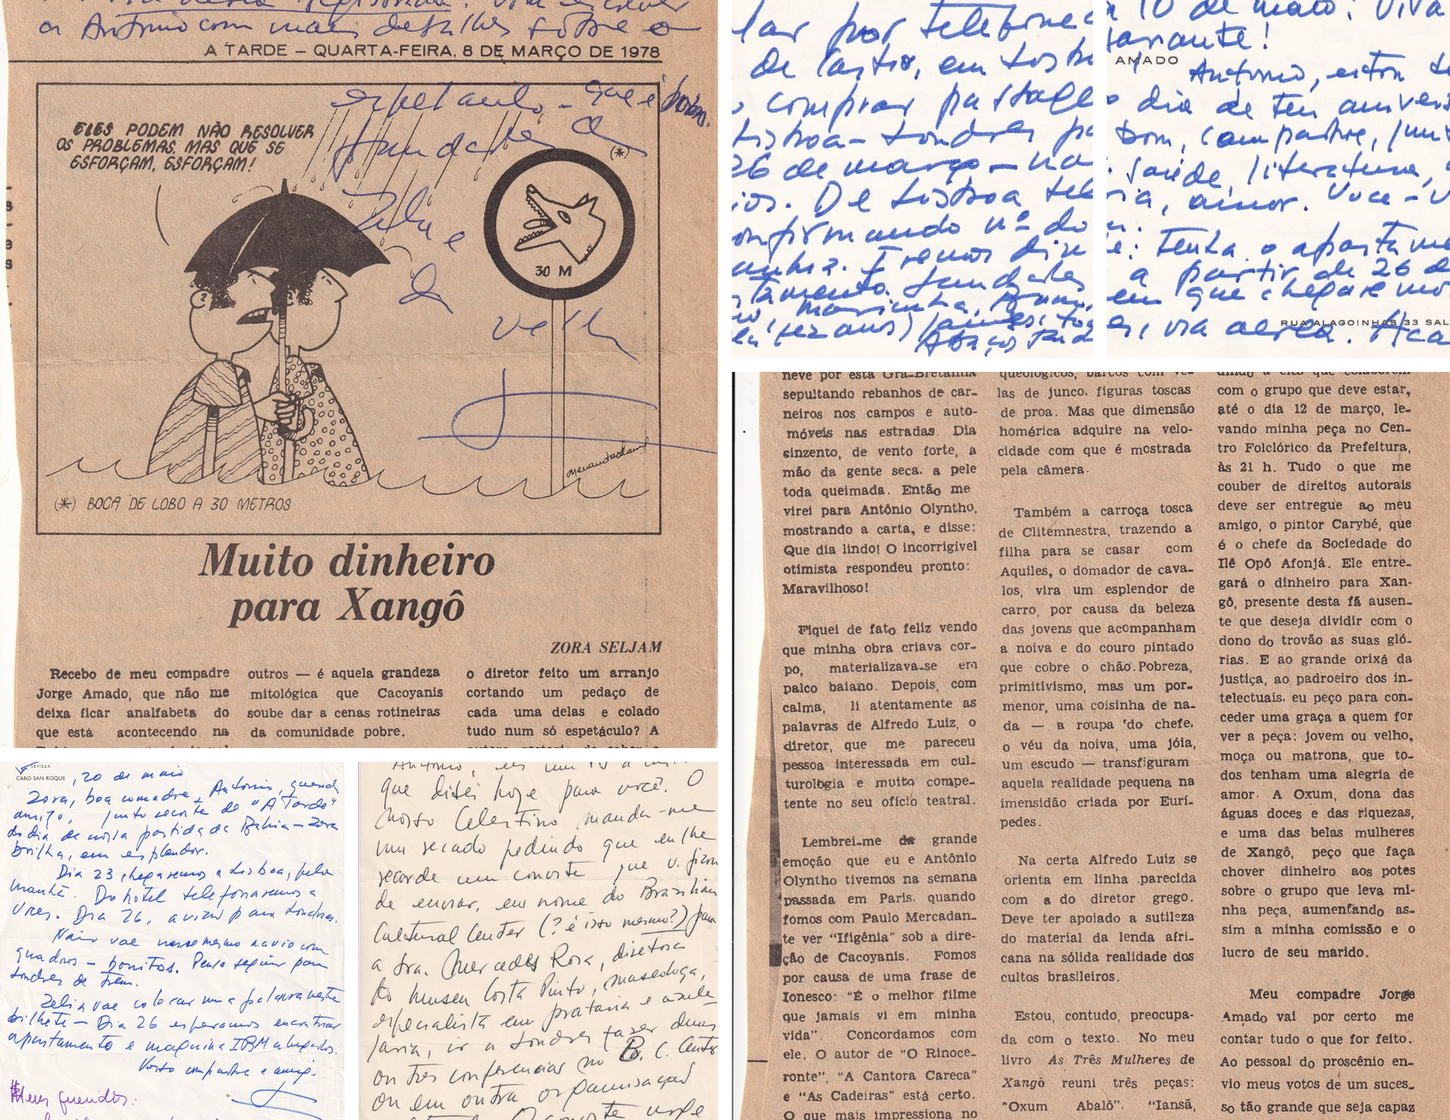 o Antonio com mais detalhes sobre o
A TARDE – QUARTA-FEIRA, 8 DE MARÇO DE 1978
espetaculo – que é bom.
ELES PODEM NÃO RESOLVER
OS PROBLEMAS, MAS QUE SE
ESFORÇAM, ESFORÇAM!
(*)
30 M
Zelia e
do
velho
(*) BOCA DE LOBO A 30 METROS
Muito dinheiro
para Xangô
ZORA SELJAM
Recebo de meu compadre
Jorge Amado, que não me
deixa ficar analfabeta do
que está acontecendo na
outros — é aquela grandeza
mitológica que Cacoyanis
soube dar a cenas rotineiras
da comunidade pobre.
o diretor feito um arranjo
cortando um pedaço de
cada uma delas e colado
tudo num só espetáculo? A
lar por telefone
de Castro, em Lisb
comprar passage
Lisboa-Londres pa
26 de março – na
ios. De Lisboa tele
onfirmando nº do
anhia. Iremos dire
tamento. Saudades
a 10 de maio! Viva
AMADO
Antonio, estou
o dia de teu anivers
bom, compadre, mu
saúde, literatura,
ria, amor. Voce – v
e: tenha o apartame
a partir de 26 de
em que chegaremos
RUA ALAGOINHAS 33 SAL
, via aerea.
neve por esta Grã-Bretanha
sepultando rebanhos de car-
neiros nos campos e auto-
móveis nas estradas. Dia
cinzento, de vento forte, a
mão da gente seca, a pele
toda queimada. Então me
virei para Antônio Olyntho,
mostrando a carta, e disse:
Que dia lindo! O incorrigível
otimista respondeu pronto:
Maravilhoso!
Fiquei de fato feliz vendo
que minha obra criava cor-
po, materializava-se em
palco baiano. Depois, com
calma, li atentamente as
palavras de Alfredo Luiz, o
diretor, que me pareceu
pessoa interessada em cul-
turologia e muito compe-
tente no seu ofício teatral.
Lembrei-me da grande
emoção que eu e Antônio
Olyntho tivemos na semana
passada em Paris, quando
fomos com Paulo Mercadan-
te ver "Ifigênia" sob a dire-
ção de Cacoyanis. Fomos
por causa de uma frase de
Ionesco: "É o melhor filme
que jamais vi em minha
vida". Concordamos com
ele. O autor de "O Rinoce-
ronte", "A Cantora Careca"
e "As Cadeiras" está certo.
O que mais impressiona no
queológicos, barcos com ve-
las de junco, figuras toscas
de proa. Mas que dimensão
homérica adquire na velo-
cidade com que é mostrada
pela câmera.
Também a carroça tosca
de Clitemnestra, trazendo a
filha para se casar com
Aquiles, o domador de cava-
los, vira um esplendor de
carro, por causa da beleza
das jovens que acompanham
a noiva e do couro pintado
que cobre o chão. Pobreza,
primitivismo, mas um por-
menor, uma coisinha de na-
da — a roupa do chefe,
o véu da noiva, uma jóia,
um escudo — transfiguram
aquela realidade pequena na
imensidão criada por Eurí-
pedes.
Na certa Alfredo Luiz se
orienta em linha parecida
com a do diretor grego.
Deve ter apoiado a sutileza
do material da lenda afri-
cana na sólida realidade dos
cultos brasileiros.
Estou, contudo, preocupa-
da com o texto. No meu
livro As Três Mulheres de
Xangô reuni três peças:
"Oxum Abalô". "Iansã,
com o grupo que deve estar,
até o dia 12 de março, le-
vando minha peça no Cen-
tro Folclórico da Prefeitura,
às 21 h. Tudo o que me
couber de direitos autorais
deve ser entregue ao meu
amigo, o pintor Carybé, que
é o chefe da Sociedade do
Ilê Opô Afonjá. Ele entre-
gará o dinheiro para Xan-
gô, presente desta fã ausen-
te que deseja dividir com o
dono do trovão as suas gló-
rias. E ao grande orixá da
justiça, ao padroeiro dos in-
telectuais, eu peço para con-
ceder uma graça a quem for
ver a peça: jovem ou velho,
moça ou matrona, que to-
dos tenham uma alegria de
amor. A Oxum, dona das
águas doces e das riquezas,
e uma das belas mulheres
de Xangô, peço que faça
chover dinheiro aos potes
sobre o grupo que leva mi-
nha peça, aumentando as-
sim a minha comissão e o
lucro de seu marido.
Meu compadre Jorge
Amado vai por certo me
contar tudo o que for feito.
Ao pessoal do proscênio en-
vio meus votos de um suces-
so tão grande que seja capaz
SEVILLA
CABO SAN ROQUE
, 20 de maio
Zora, boa comadre, Antonio, querido
amigo, junto recorte de "A Tarde"
do dia de nossa partida da Bahia – Zora
brilha, em esplendor.
Dia 23 chegaremos a Lisboa, pela
manhã. Do hotel telefonaremos a
vces. Dia 26, avião para Londres.
Nair vae nesse mesmo navio com
quadros – bonitos. Pensa seguir para
Londres de trem.
Zelia vae colocar uma palavra neste
bilhete – Dia 26 esperamos encontrar
apartamento e maquina IBM alugados.
Vosso compadre e amigo.
Meus queridos:
que ditei hoje para você. O
nosso Celestino manda-me
um recado pedindo que eu lhe
recorde um convite que v. ficou
de enviar, em nome do Brazilian
Cultural Center (? é isso mesmo?) para
a Sra. Mercedes Rosa, diretora
do museu Costa Pinto, museologa,
especialista em prataria e azule-
jaria, ir a Londres fazer duas
ou tres conferencias no B. C. Center
ou em outra organização